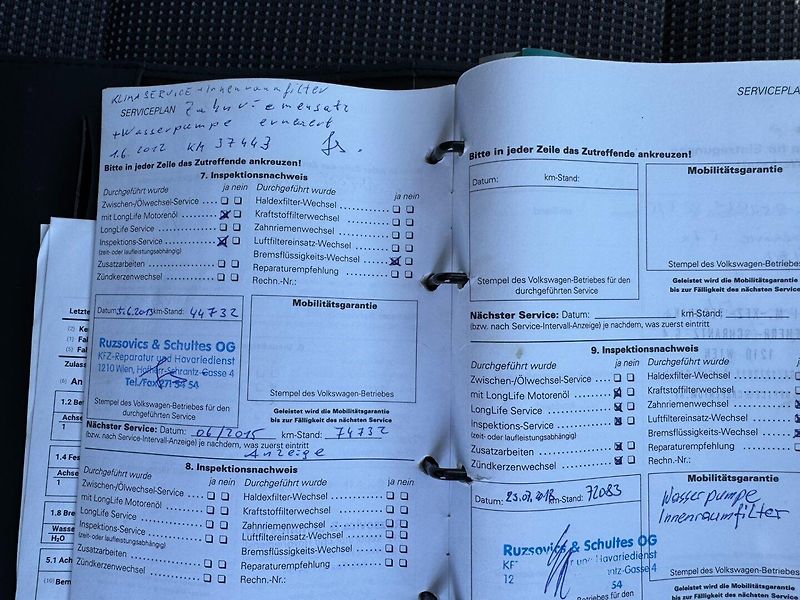 KLIMASERVICE + Innenraumfilter
SERVICEPLAN Zahnriemensatz
+ Wasserpumpe erneuert
1.6.2012 KM 37443
Bitte in jeder Zeile das Zutreffende ankreuzen!
7. Inspektionsnachweis
Durchgeführt wurde ja nein Durchgeführt wurde ja nein
Zwischen-/Ölwechsel-Service Haldexfilter-Wechsel
mit LongLife Motorenöl Kraftstoffilterwechsel
LongLife Service Zahnriemenwechsel
Inspektions-Service Luftfiltereinsatz-Wechsel
(zeit- oder laufleistungsabhängig) Bremsflüssigkeits-Wechsel
Zusatzarbeiten Reparaturempfehlung
Zündkerzenwechsel Rechn.-Nr.:
Datum: 5.6.2013 km-Stand: 44732
Mobilitätsgarantie
Ruzsovics & Schultes OG
KFZ-Reparatur und Havariedienst
1210 Wien, Hofherr-Schrantz-Gasse 4
Tel./Fax 271 54 54
Stempel des Volkswagen-Betriebes für den
durchgeführten Service
Stempel des Volkswagen-Betriebes
Geleistet wird die Mobilitätsgarantie
bis zur Fälligkeit des nächsten Service!
Nächster Service: Datum: 06/2015 km-Stand: 74732
(bzw. nach Service-Intervall-Anzeige) je nachdem, was zuerst eintritt
Anzeige
8. Inspektionsnachweis
Durchgeführt wurde ja nein Durchgeführt wurde ja nein
Zwischen-/Ölwechsel-Service Haldexfilter-Wechsel
mit LongLife Motorenöl Kraftstoffilterwechsel
LongLife Service Zahnriemenwechsel
Inspektions-Service Luftfiltereinsatz-Wechsel
(zeit- oder laufleistungsabhängig) Bremsflüssigkeits-Wechsel
Zusatzarbeiten Reparaturempfehlung
Zündkerzenwechsel Rechn.-Nr.:
SERVICEPLA
Bitte in jeder Zeile das Zutreffende ankreuzen!
Datum: km-Stand:
Mobilitätsgarantie
Stempel des Volkswagen-Betriebes für den
durchgeführten Service
Stempel des Volkswagen-Betriebes
Geleistet wird die Mobilitätsgarantie
bis zur Fälligkeit des nächsten Service!
Nächster Service: Datum: km-Stand:
(bzw. nach Service-Intervall-Anzeige) je nachdem, was zuerst eintritt
9. Inspektionsnachweis
Durchgeführt wurde ja nein Durchgeführt wurde
Zwischen-/Ölwechsel-Service Haldexfilter-Wechsel
mit LongLife Motorenöl Kraftstoffilterwechsel
LongLife Service Zahnriemenwechsel
Inspektions-Service Luftfiltereinsatz-Wechsel
(zeit- oder laufleistungsabhängig) Bremsflüssigkeits-Wechsel
Zusatzarbeiten Reparaturempfehlung
Zündkerzenwechsel Rechn.-Nr.:
Datum: 23.07.2018 km-Stand: 72083
Mobilitätsgarantie
Wasserpumpe
Innenraumfilter
Ruzsovics & Schultes OG
KF und Havariedienst
12 ntz-Gasse 4
54
Betriebes für den
Stempel des Volkswagen-Betriebes
Geleistet wird die Mobilitätsgarantie
bis zur Fälligkeit des nächsten Service!
Letzte
(2) Ke
(1) Fal
(5) Fal
Zulass
(6) An
1.2 Be
Achse
1
1.4 Fe
Achse
1
1.8 Bre
Wasse
H₂O
5.1 Ach
(10) Bem